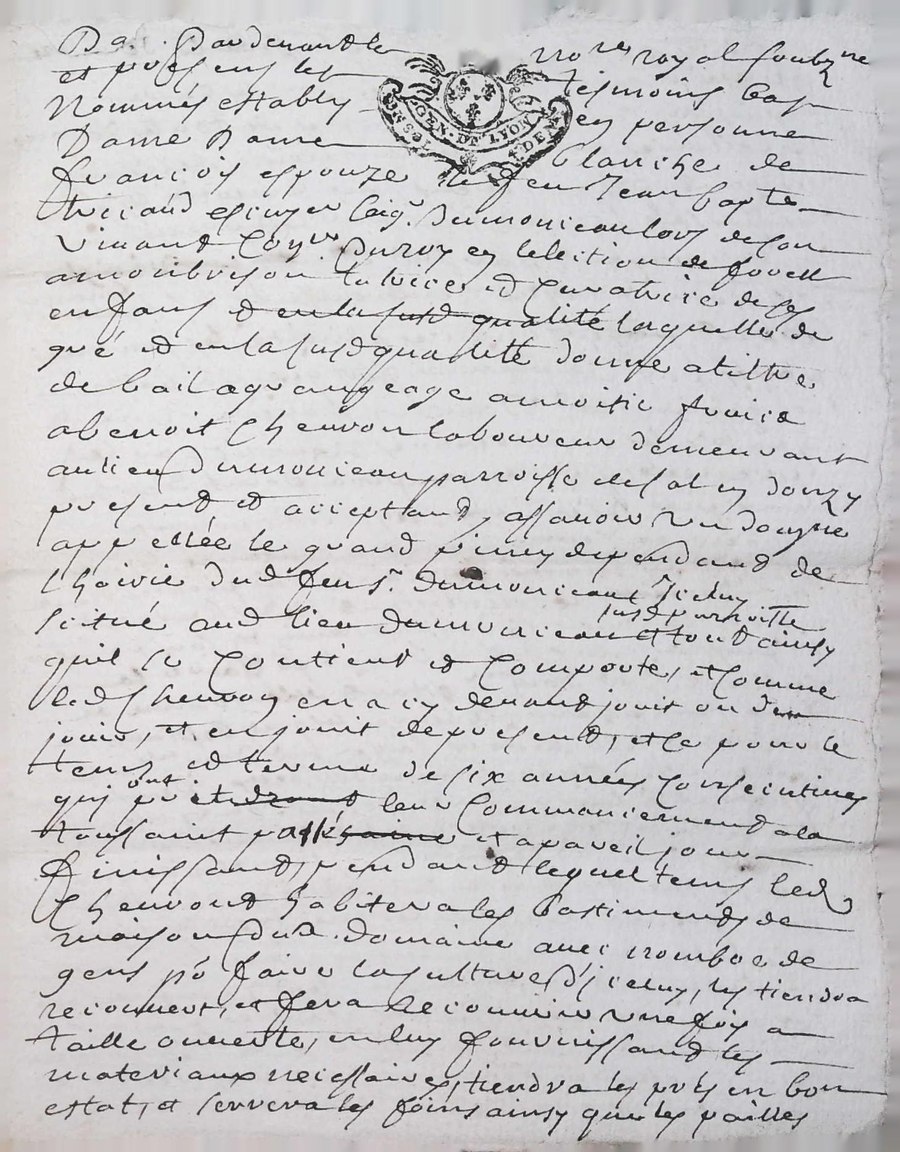 Pardevant le no.re royal soubzne
et presens les tesmoins bas
Nommés establys en personne
Dame Dame Blanche de
GEN. DE LYON
DEN
francois espouze de feu Jean bapte
tricaud escuyer seig. dumonceau lors de son
vivant Con.er du roy en lelection de forest
a monbrison tutrice et curatrice de ses
enfans et en la susd qualité laquelle de
gré et en la susd qualitté donne a tiltre
de bail a grangeage a moitié fruicts
a benoit Chevron laboureur demeurant
au lieu dumonceau parroisse de salt en donzy
present et acceptant, assavoir un domayne
appellée le grand pinay dependant de
lhoirie dud feu sr. dumonceau iceluy
susd parroisse
scitué aud lieu dumonceau et tout ainsy
quil se Contient et Comporte, et Comme
led Chevron en a cy devant jouit ou deu
jouir, et en jouit de present, et ce pour le
tems et terme de six années Consecutives
qui ont leur Commancement a la
toussaint passé et a pareil jour
finissant, pendant lequel tems led
Chevront habitera les bastiments de
maison dud. domaine avec nombre de
gens po faire la culture d'jceluy, les tiendra
recouvert, et fera recouvrir une fois a
taille ouverte, en luy fournissant les
materiaux necessaires, tiendra les prés en bon
estat, et serrera les foins ainsy que les pailles